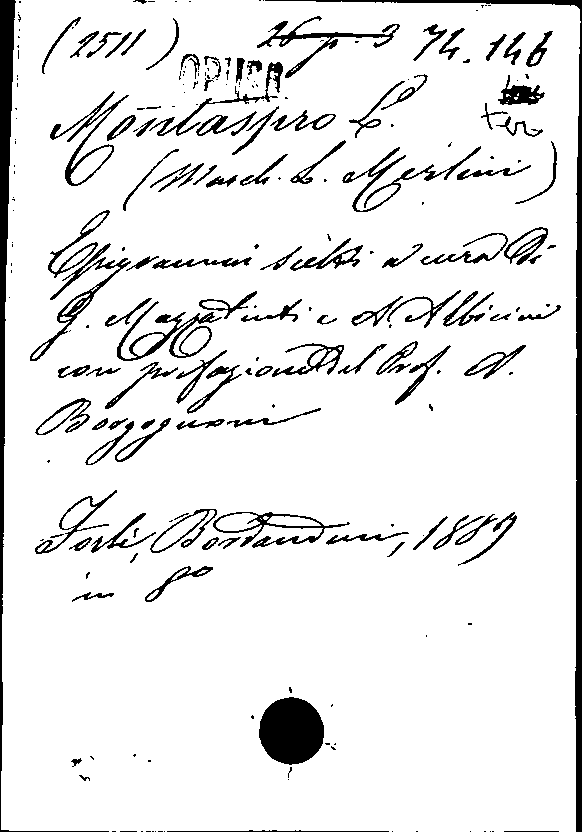 (2511) 26 p. 3 74.146
OPUSC
ter
Montaspro L.
(March. L. Merlini)
Epigrammi scelti a cura di
G. Mazzatinti e A. Albicini
con prefazione del Prof. A.
Borgognoni
Forlì, Bordandini, 1889
in 8º